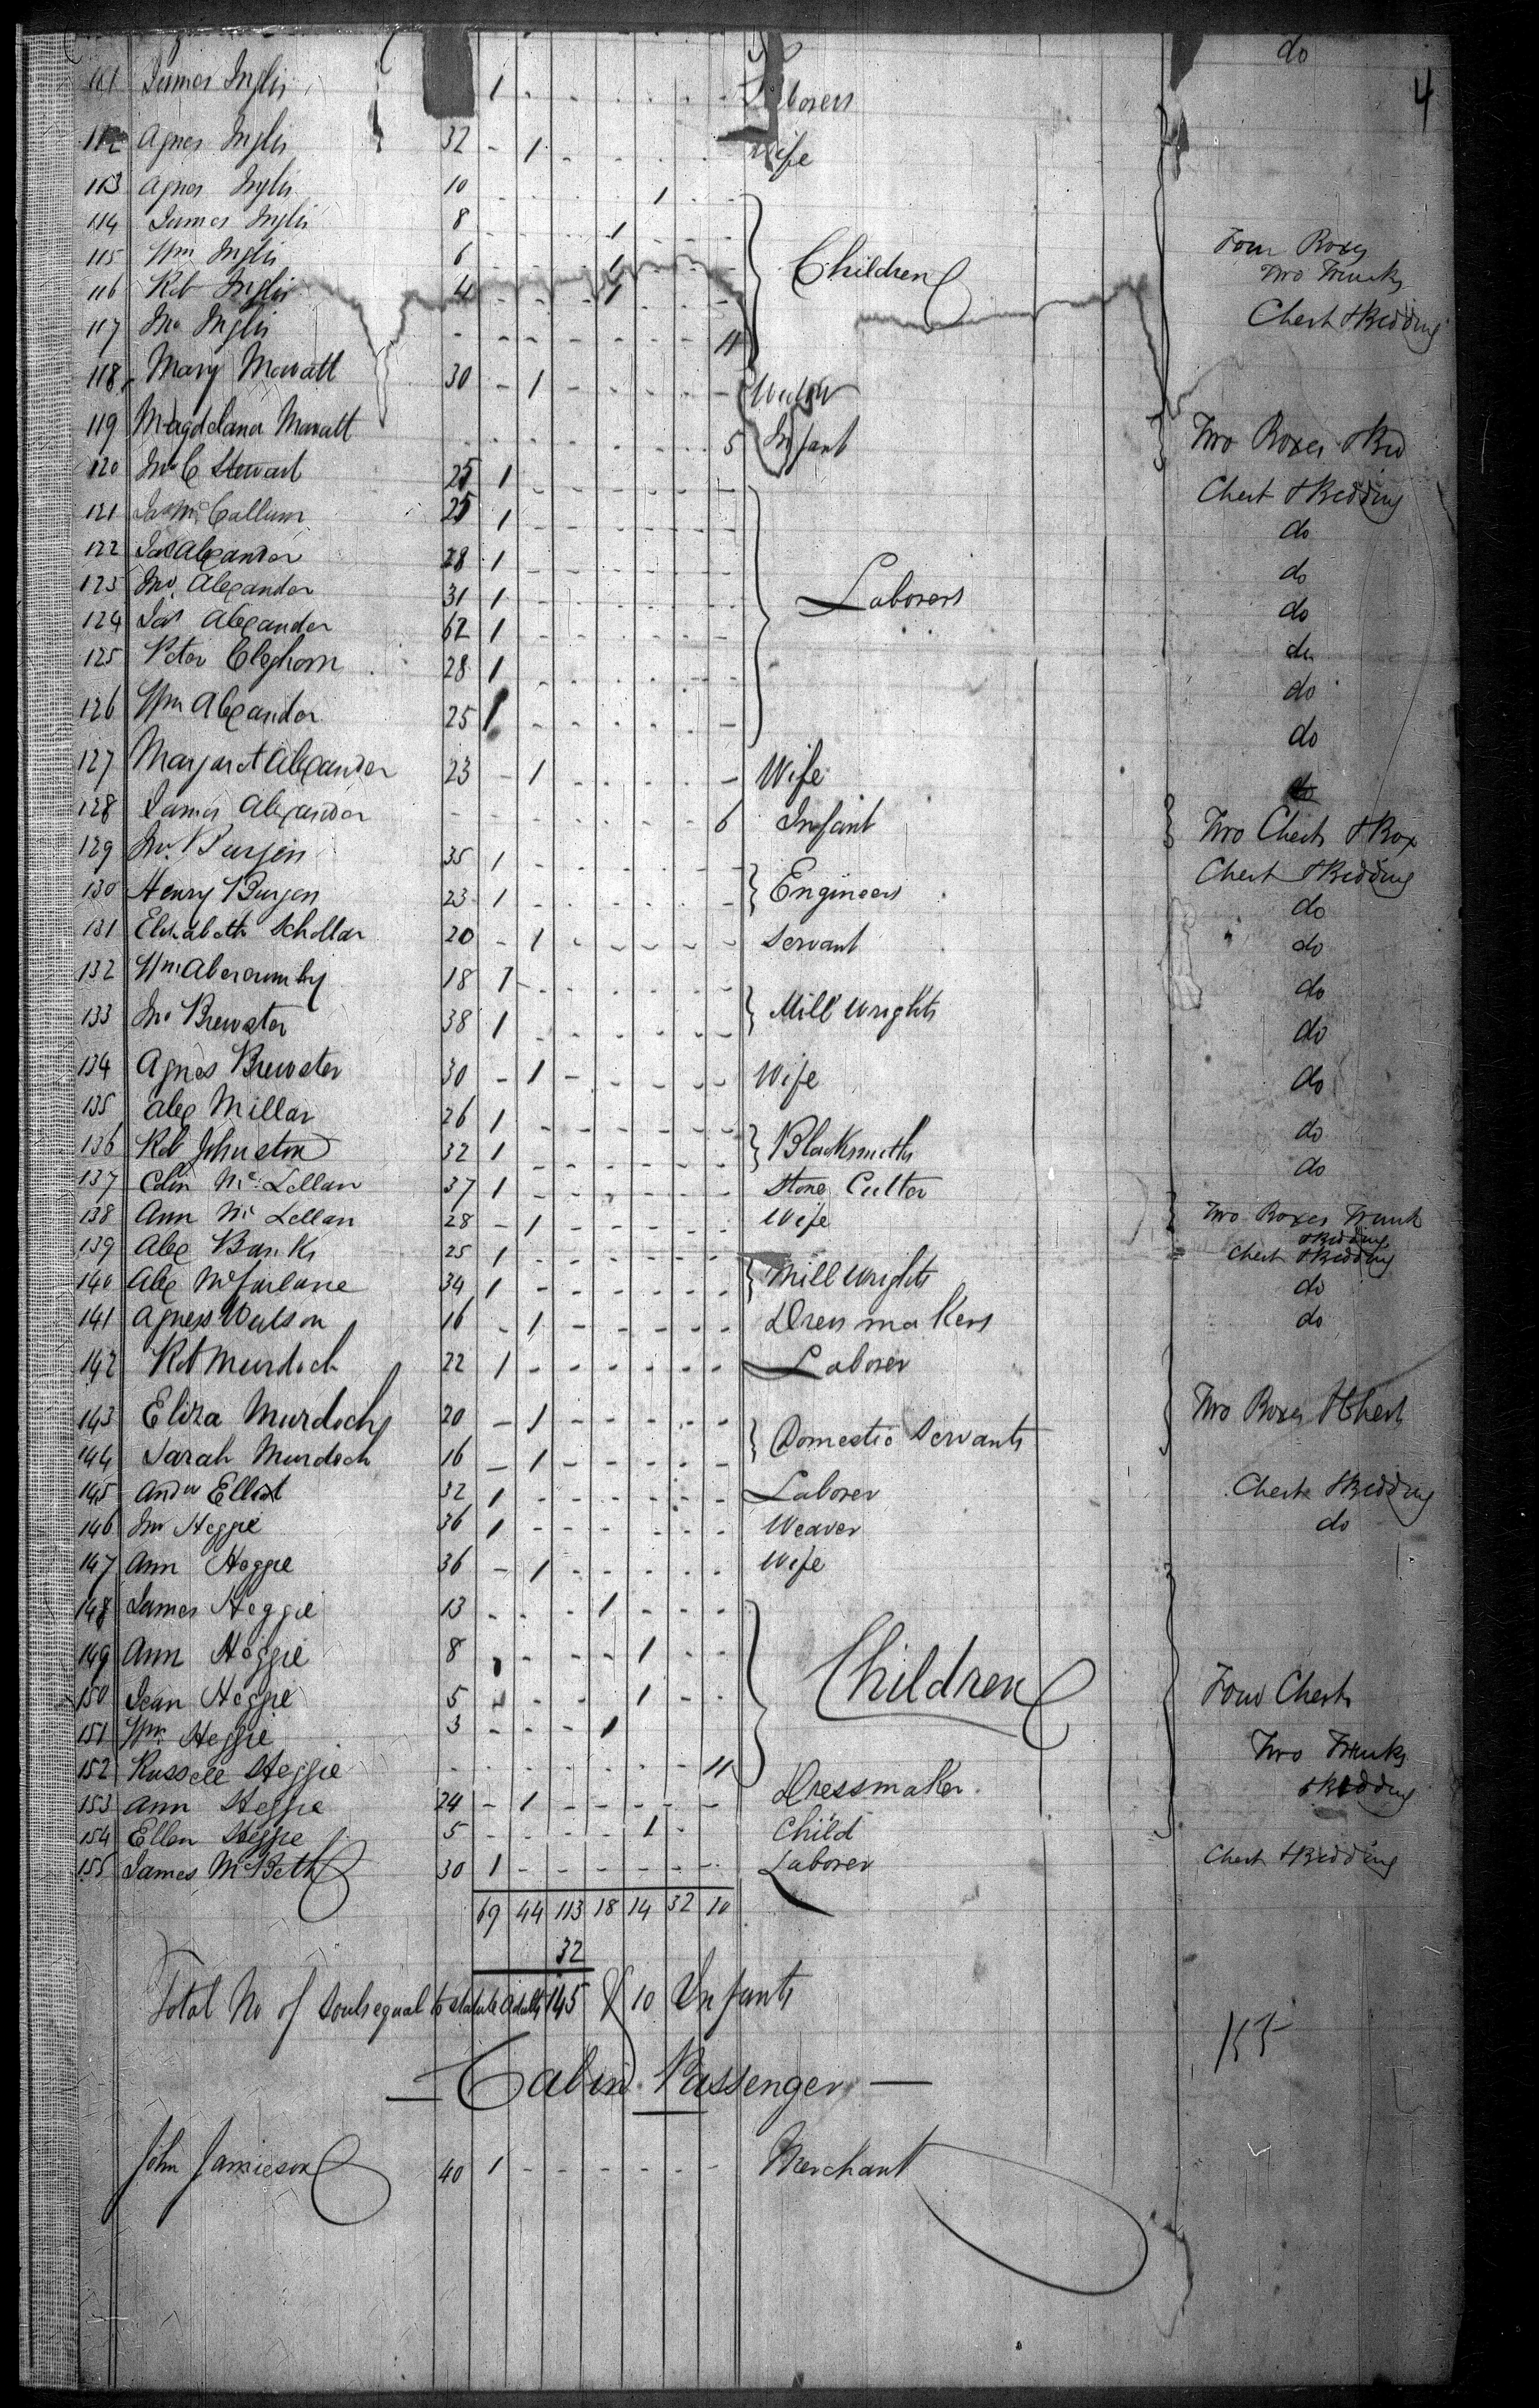 do
4
111 James Inglis 1 Laborers
112 Agnes Inglis 32 - 1 Wife
113 Agnes Inglis 10 1
114 James Inglis 8 1
115 Wm Inglis 6 1 Children Four Boxes
116 Rob Inglis 4 1 Two Trunks
117 Jno Inglis 11 Chest & Bedding
118 Mary Mowatt 30 - 1 Widow
119 Magdelana Mowatt 5 Infant Two Boxes & Bed
120 Jno C Stewart 25 1 Chest & Bedding
121 Jas Mc Callum 25 1 do
122 Jas Alexander 28 1 do
123 Jno. Alexander 31 1 Laborers do
124 Jas Alexander 62 1 do
125 Peter Cleghorn 28 1 do
126 Wm Alexander 25 1 do
127 Margaret Alexander 23 - 1 Wife do
128 James Alexander 6 Infant Two Chests & Box
129 Jno. Burgen 35 1 Chest & Bedding
130 Henry Burgen 23 1 Engineers do
131 Elizabeth Schollar 20 - 1 Servant do
132 Wm Abercrumby 18 1 do
133 Jno Brewster 38 1 Mill Wrights do
134 Agnes Brewster 30 - 1 Wife do
135 Alex Millar 26 1 do
136 Rob Johnston 32 1 Blacksmiths do
137 Colin Mc Lellan 37 1 Stone Cutter
138 Ann Mc Lellan 28 - 1 Wife Two Boxes Trunk
& Bedding
139 Alex Banks 25 1 Chest & Bedding
140 Alex McFarlane 34 1 Mill Wrights do
141 Agness Watson 16 - 1 Dress makers do
142 Rob Murdoch 22 1 Laborer
143 Eliza Murdoch 20 - 1 Two Boxes & Chest
144 Sarah Murdoch 16 - 1 Domestic Servants
145 Andw Elliot 32 1 Laborer Chest & Bedding
146 Jno Heggie 36 1 Weaver do
147 Ann Heggie 36 - 1 Wife
148 James Heggie 13 1
149 Ann Heggie 8 1 Children
150 Jean Heggie 5 1 Four Chests
151 Wm Heggie 3 1
152 Russell Heggie 11 Two Trunks
153 Ann Heggie 24 - 1 Dressmaker & Bedding
154 Ellen Heggie 5 1 Child
155 James McBeth 30 1 Laborer Chest & Bedding
69 44 113 18 14 32 10
32
Total No of Souls equal to Statute Adults 145 & 10 Infants
155
Cabin Passenger
John Jamieson 40 1 Merchant